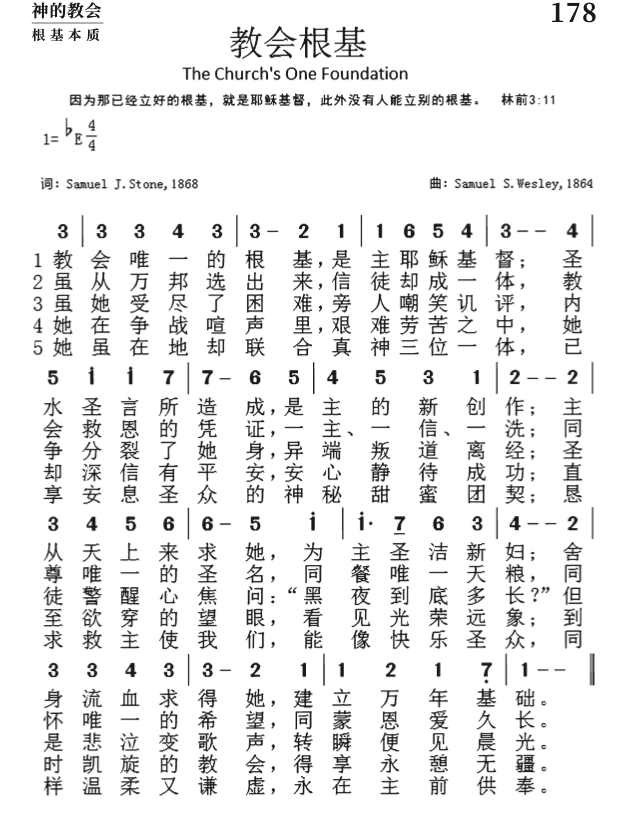 神的教会
根基本质
178
教会根基
The Church's One Foundation
因为那已经立好的根基，就是耶稣基督，此外没有人能立别的根基。 林前3:11
1=♭E 4/4
词：Samuel J.Stone,1868 曲：Samuel S.Wesley,1864
3 | 3 3 4 3 | 3 - 2 1 | 1 6 5 4 | 3 - - 4 |
1 教会唯一的根基，是主耶稣基督；圣
2 虽从万邦选出来，信徒却成一体，教
3 虽她受尽了困难，旁人嘲笑讥评，内
4 她在争战喧声里，艰难劳苦之中，她
5 她虽在地却联合真神三位一体，已
5 i i 7 | 7 - 6 5 | 4 5 3 1 | 2 - - 2 |
水圣言所造成，是主的新创作；主
会救恩的凭证，一主、一信、一洗；同
争分裂了她身，异端叛道离经；圣
却深信有平安，安心静待成功；直
享安息圣众的神秘甜蜜团契；恳
3 4 5 6 | 6 - 5 i | i· 7 6 3 | 4 - - 2 |
从天上来求她，为主圣洁新妇；舍
尊唯一的圣名，同餐唯一天粮，同
徒警醒心焦问：“黑夜到底多长？”但
至欲穿的望眼，看见光荣远象；到
求救主使我们，能像快乐圣众，同
3 3 4 3 | 3 - 2 1 | 1 2 1 7̣ | 1 - - ‖
身流血求得她，建立万年基础。
怀唯一的希望，同蒙恩爱久长。
是悲泣变歌声，转瞬便见晨光。
时凯旋的教会，得享永憩无疆。
样温柔又谦虚，永在主前供奉。